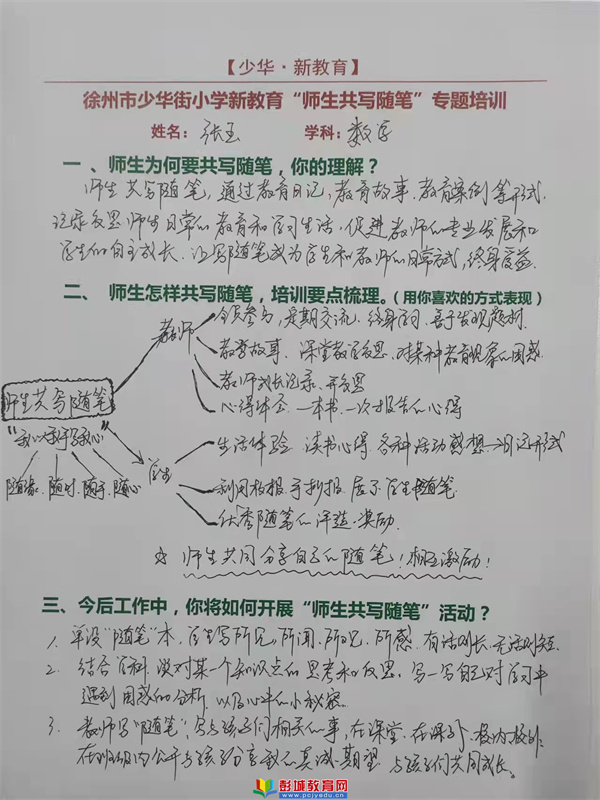 【少华·新教育】
徐州市少华街小学新教育“师生共写随笔”专题培训
姓名：张玉 学科：数学
一、师生为何要共写随笔，你的理解？
师生共写随笔，通过教育日记，教育故事、教育案例等形式，
记录反思师生日常的教育和学习生活，促进教师的专业发展和
学生的自主成长，让写随笔成为学生和教师的日常方式，终身受益。
二、师生怎样共写随笔，培训要点梳理。（用你喜欢的方式表现）
教师
领衔参与，定期交流，终身学习，善于发现题材
教育故事、课堂教学反思、对某种教育现象的困惑
教师成长记录、开反思
心得体会、一本书、一次报告的心得
师生共写随笔
“我以我手写我心”
随缘、随时、随手、随心
学生
生活体验 读书心得、各种活动感想→日记形式
利用板报、手抄报、展示学生随笔
优秀随笔的评选、奖励
☆ 师生共同分享自己的随笔！相互激励！
三、今后工作中，你将如何开展“师生共写随笔”活动？
1. 单设“随笔”本，学生写所见，所闻、所思、所感，有话则长，无话则短。
2. 结合学科，谈对某一个知识点的思考和反思，写一写自己对学习中
遇到困惑的分析，以及心中的小秘密。
3. 教师写“随笔”，写与孩子们相关的事，在课堂、在课下、校内校外，
在班级内公开与孩子分享我的真诚期望，与孩子们共同成长。
彭城教育网
www.pcjyedu.cn